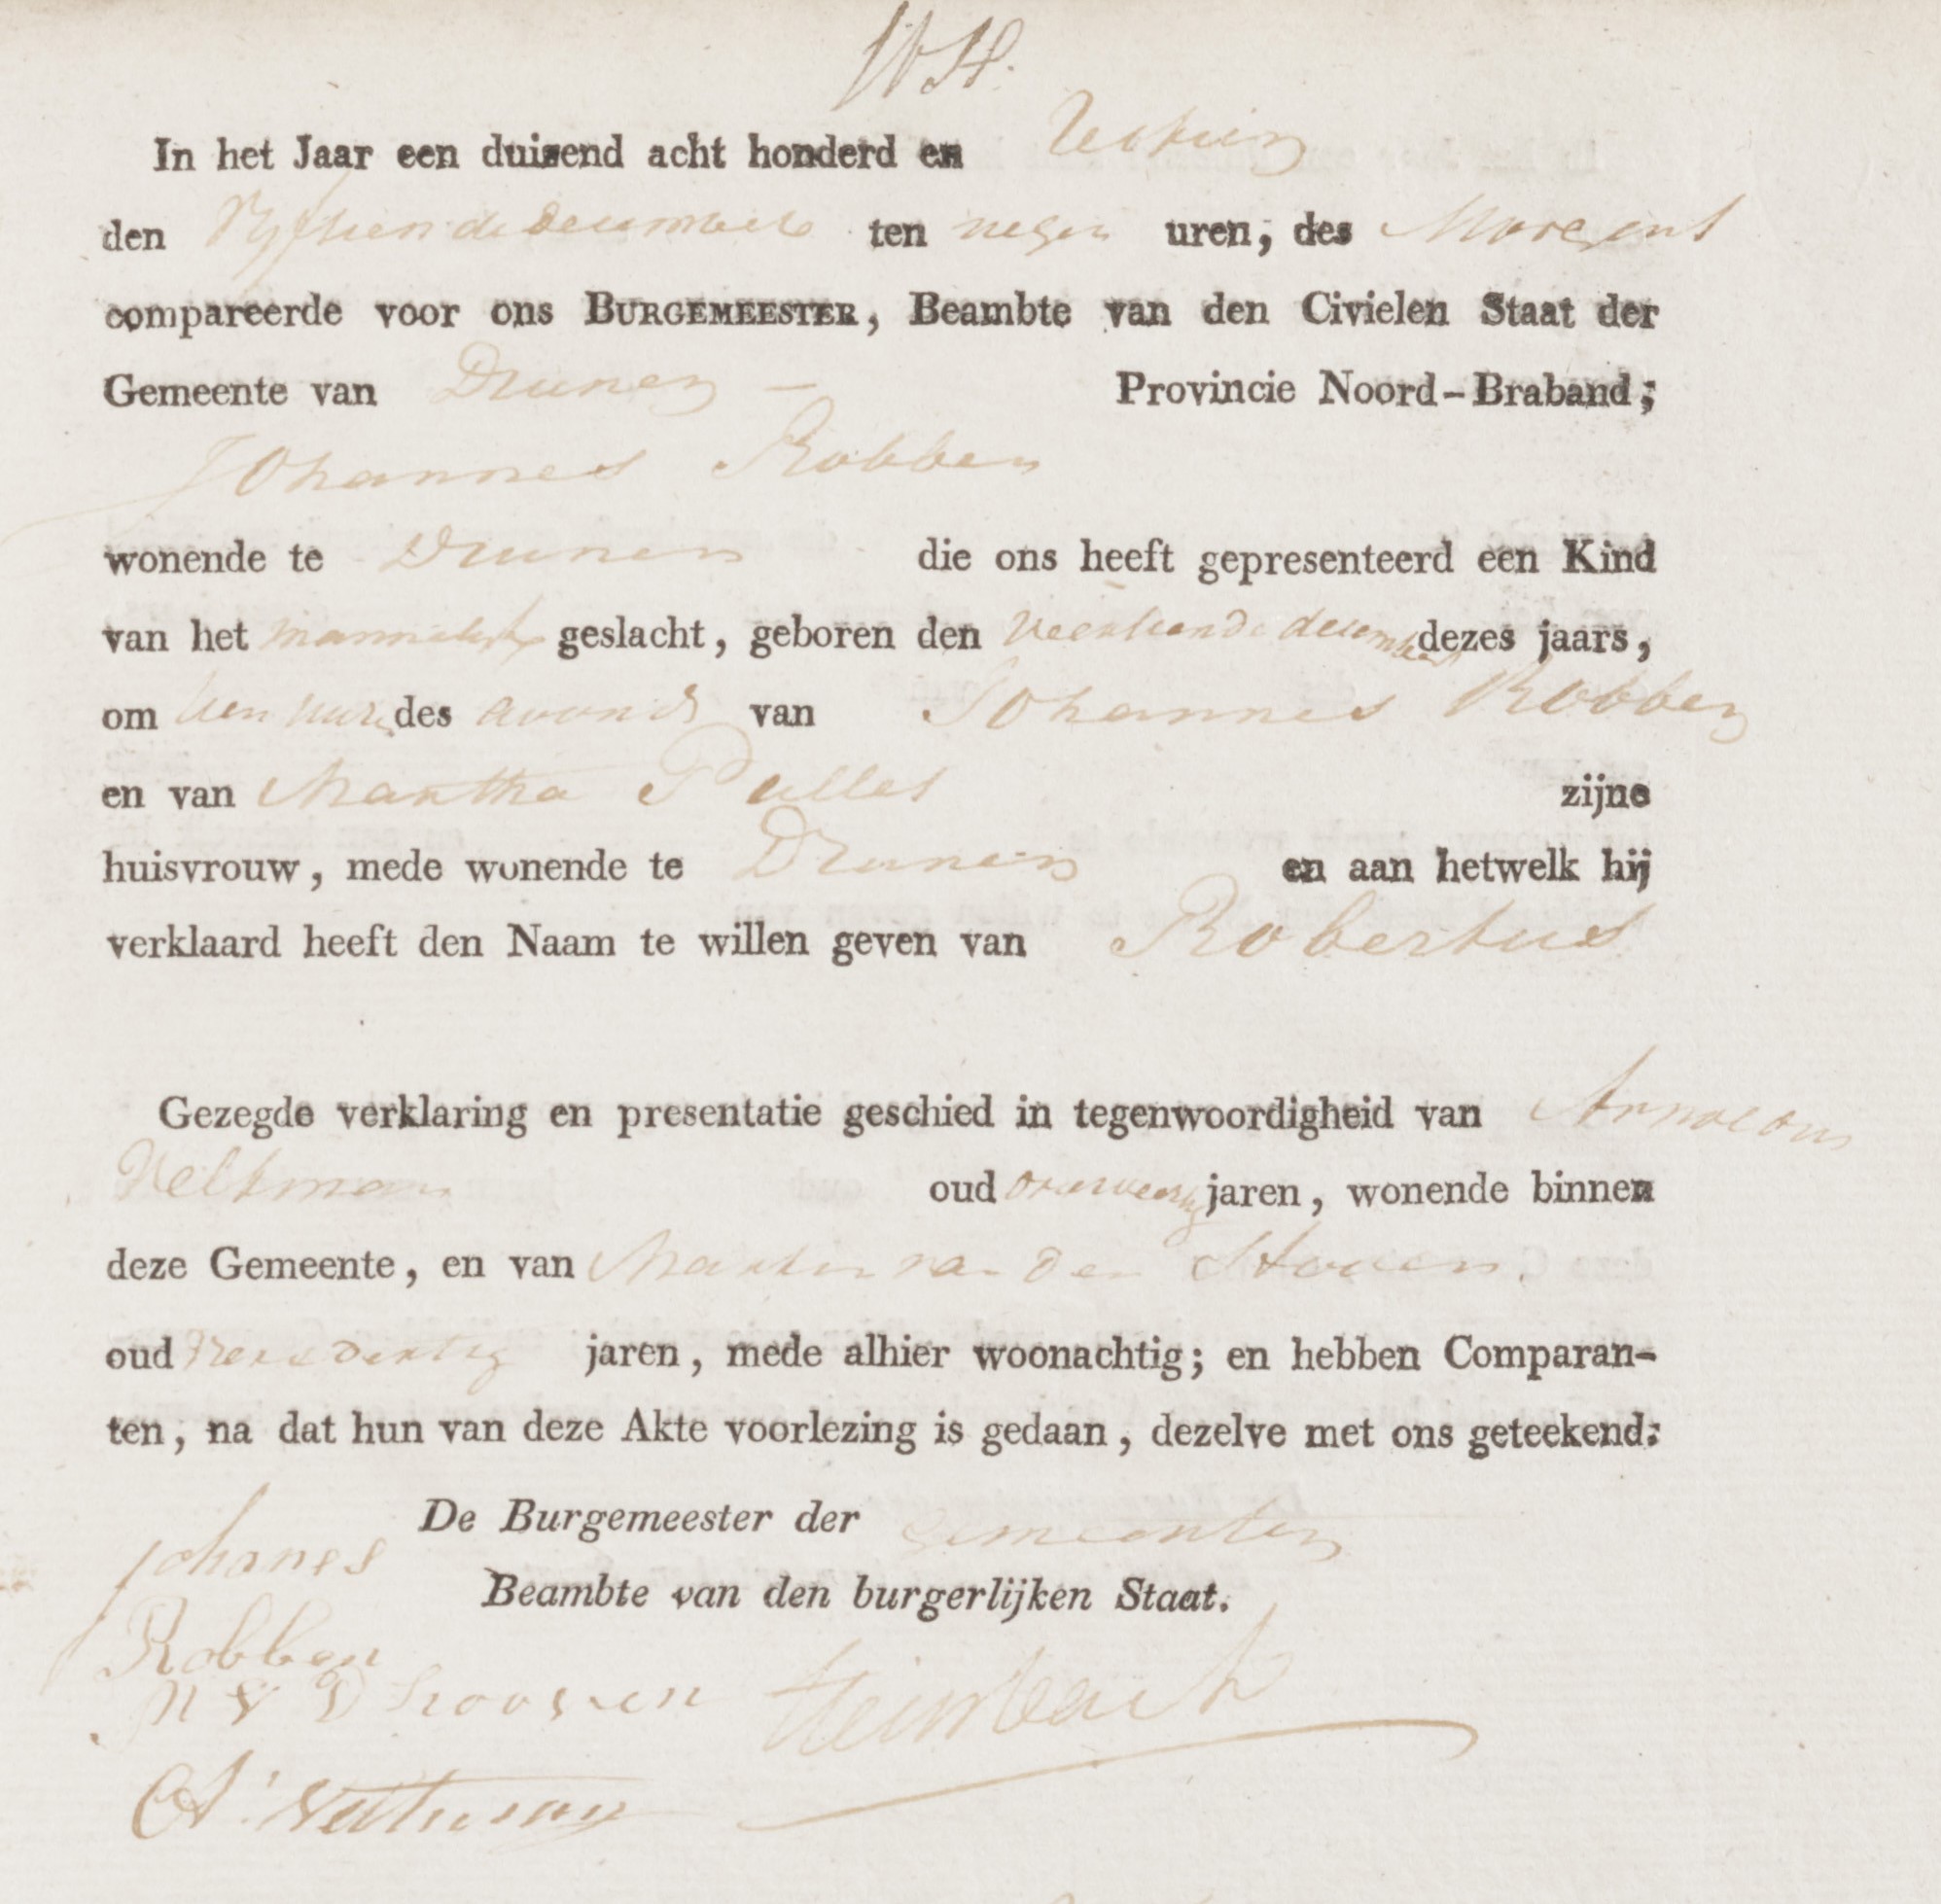 In het Jaar een duizend acht honderd en
den Vyftiende december ten negen uren, des Morgens
compareerde voor ons BURGEMEESTER, Beambte van den Civielen Staat der
Gemeente van Drunen – Provincie Noord-Braband;
Johannes Robben
wonende te Drunen die ons heeft gepresenteerd een Kind
van het mannelyk geslacht, geboren den Veertiende december dezes jaars,
om tien uure des avonds van Johannes Robben
en van Martha Pulles zijne
huisvrouw, mede wonende te Drunen en aan hetwelk hij
verklaard heeft den Naam te willen geven van Robertus
Gezegde verklaring en presentatie geschied in tegenwoordigheid van
Veltman oud jaren, wonende binnen
deze Gemeente, en van van den
oud jaren, mede alhier woonachtig; en hebben Comparan-
ten, na dat hun van deze Akte voorlezing is gedaan, dezelve met ons geteekend:
De Burgemeester der gemeenten
Johanes
Beambte van den burgerlijken Staat.
Robben
A. Veltman